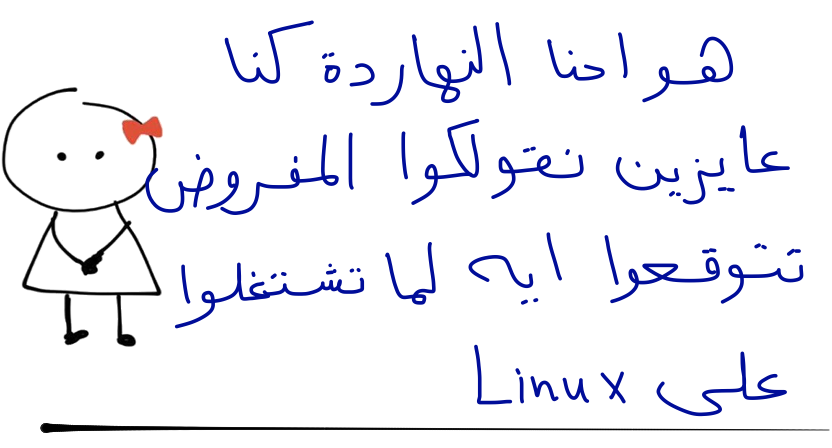 هو احنا النهاردة كنا
عايزين نقولكوا المفروض
تتوقعوا ايه لما تشتغلوا
على Linux